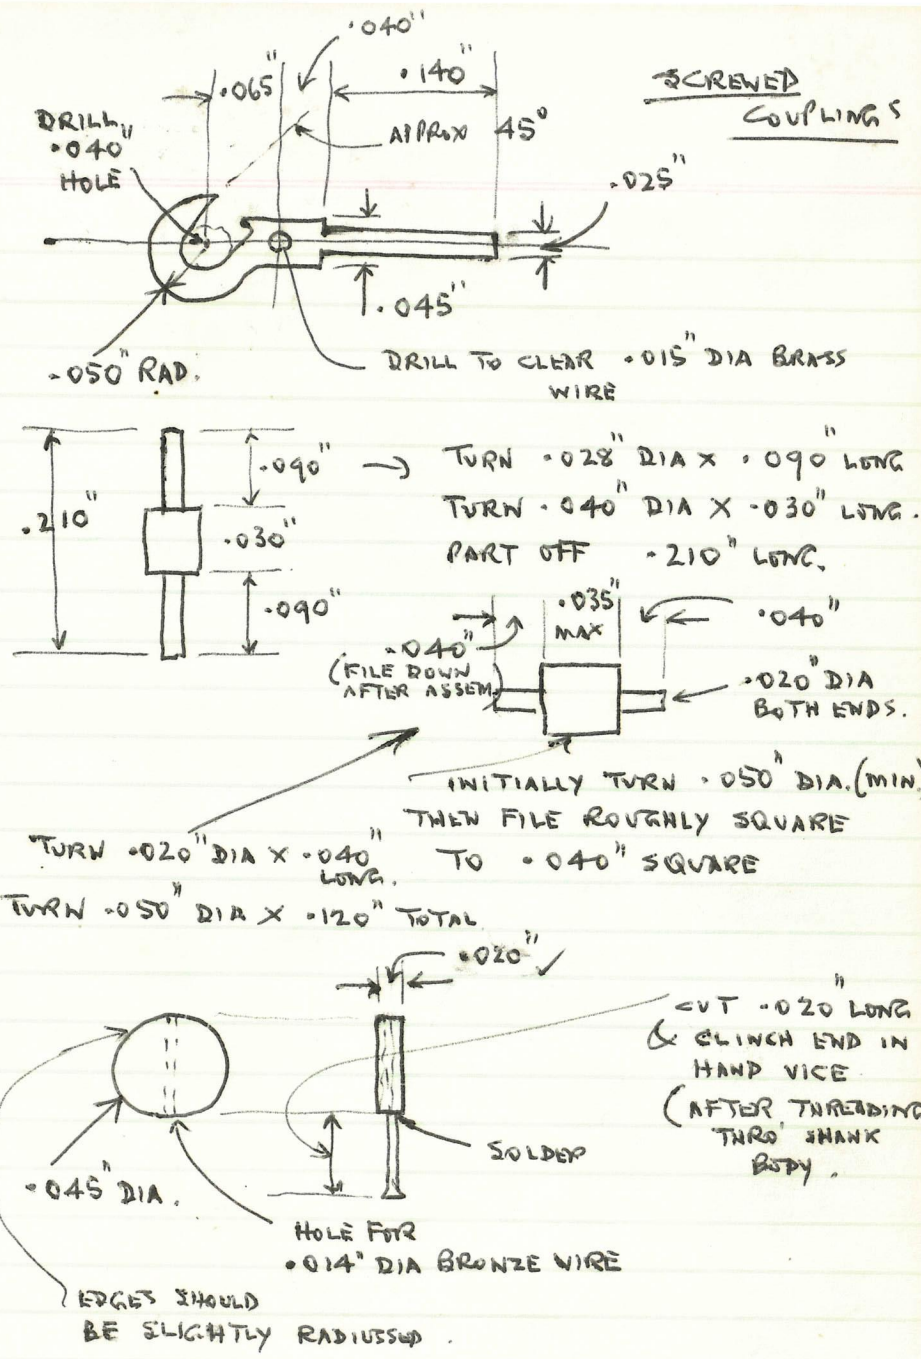 .040"
.065"
.140"
SCREWED
COUPLINGS
DRILL
.040"
HOLE
APPROX 45°
.025"
.045"
.050" RAD.
DRILL TO CLEAR .015" DIA BRASS
WIRE
.210"
.090"
.030"
.090"
TURN .028" DIA X .090" LONG
TURN .040" DIA X .030" LONG.
PART OFF .210" LONG.
.035"
MAX
.040"
.040"
(FILE DOWN
AFTER ASSEM)
.020" DIA
BOTH ENDS.
INITIALLY TURN .050" DIA. (MIN)
THEN FILE ROUGHLY SQUARE
TO .040" SQUARE
TURN .020" DIA X .040"
LONG.
TURN .050" DIA X .120" TOTAL
.020" ✓
CUT .020" LONG
& CLINCH END IN
HAND VICE
(AFTER THREADING
THRO' SHANK
BODY.
SOLDER
.045" DIA.
HOLE FOR
.014" DIA BRONZE WIRE
EDGES SHOULD
BE SLIGHTLY RADIUSSED.